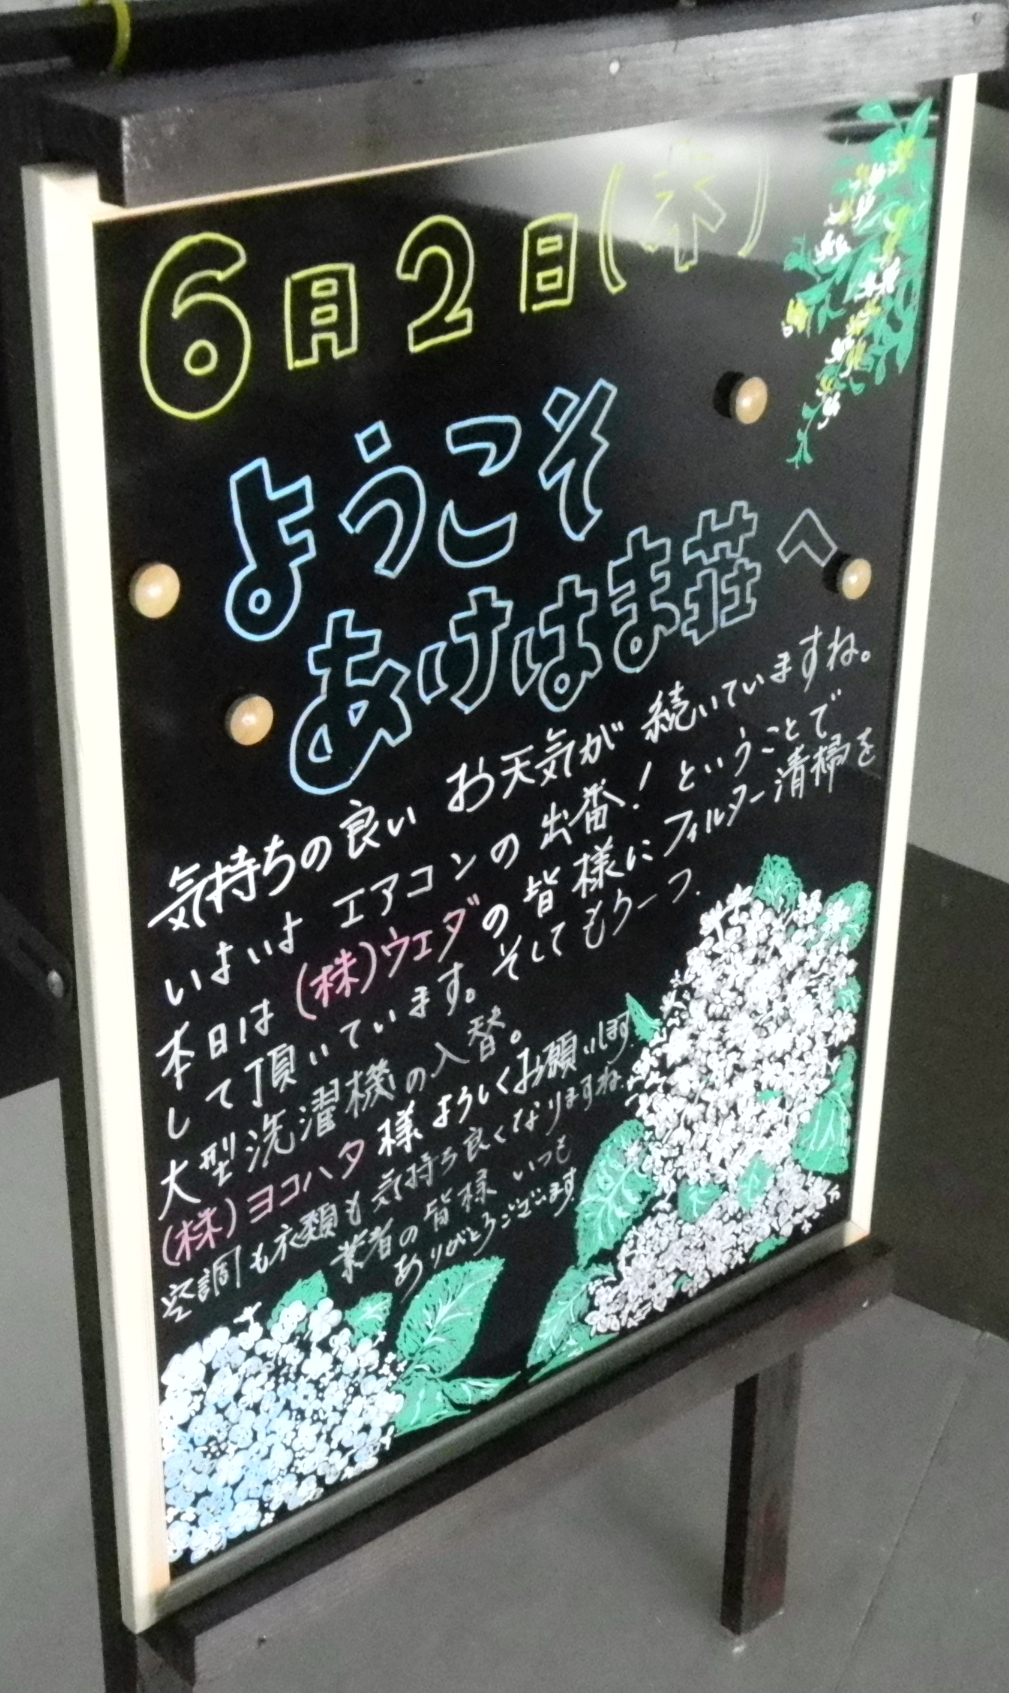 6月2日(木)
ようこそ
あけはま荘へ
気持ちの良い お天気が 続いていますね。
いよいよ エアコンの 出番! ということで
本日は (株)ウエダの 皆様に フィルター清掃を
して頂いています。そしてもう一つ、
大型洗濯機の入替。
(株)ヨコハタ様 よろしくお願いします
空調も衣類も 気持ち良くなりますね。
業者の皆様 いつも
ありがとうございます